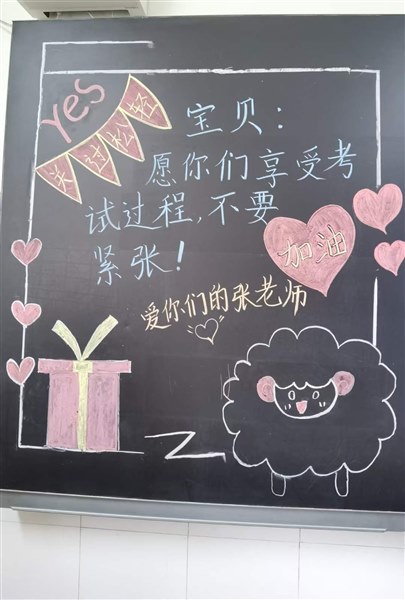 yes
轻松过关
宝贝：
愿你们享受考
试过程,不要
紧张!
加油
爱你们的张老师